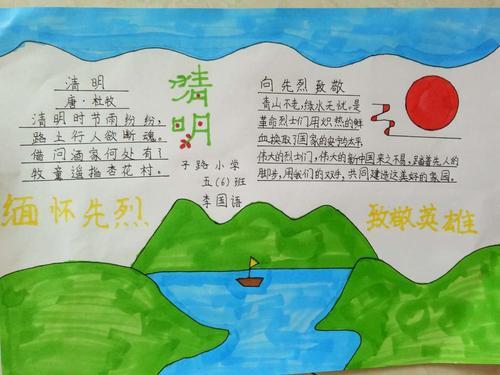 清明
唐·杜牧
清明时节雨纷纷，
路上行人欲断魂。
借问酒家何处有？
牧童遥指杏花村。
清明
子路小学
五(6)班
李国语
向先烈致敬
青山不老，绿水无忧，是
革命烈士们用炽热的鲜
血换取了国家的安宁与太平
伟大的烈士们，伟大的新中国来之不易，踏着先人的
脚步，用我们的双手，共同建造这美好的家园。
缅怀先烈
致敬英雄